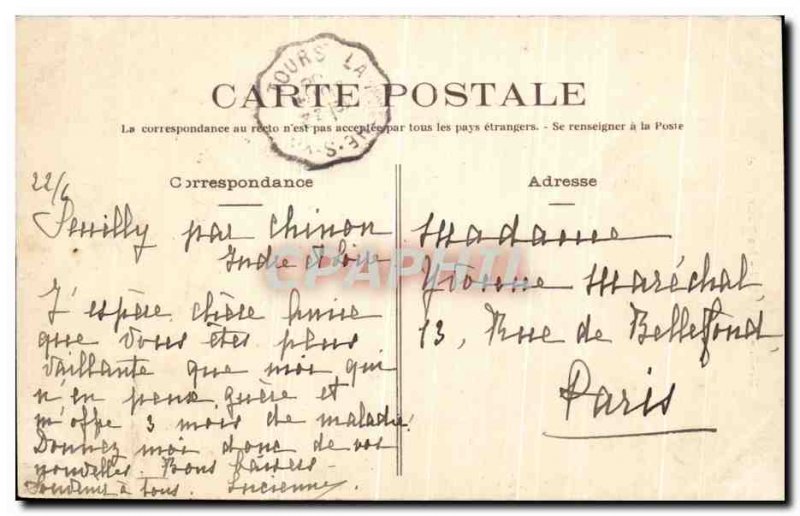 CARTE POSTALE
La correspondance au recto n'est pas acceptée par tous les pays étrangers. - Se renseigner à la Poste
TOURS LA
S-YON
Correspondance
Adresse
22/6
par Chinon
Indre et Loire
J'espère chère
que vous êtes plus
vaillante que moi qui
n'en peux guère et
m'offre 3 mois de maladie!
Donnez moi donc de vos
nouvelles. Bons baisers
à tous. Lucienne.
Madame
Yvonne Maréchal
13, Rue de Bellefond
Paris
CPAPHIL